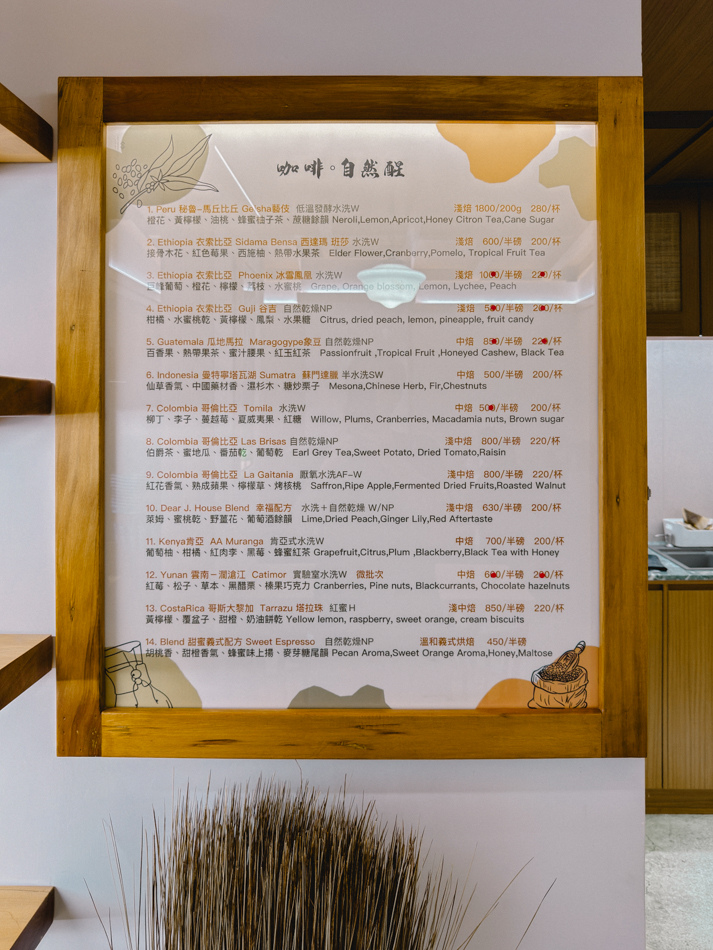 咖啡。自然醒
1. Peru 秘魯-馬丘比丘 Geisha藝伎 低溫發酵水洗W 淺焙 1800/200g 280/杯
橙花、黃檸檬、油桃、蜂蜜柚子茶、蔗糖餘韻 Neroli,Lemon,Apricot,Honey Citron Tea,Cane Sugar
2. Ethiopia 衣索比亞 Sidama Bensa 西達瑪 班莎 水洗W 淺焙 600/半磅 200/杯
接骨木花、紅色莓果、西施柚、熱帶水果茶 Elder Flower,Cranberry,Pomelo, Tropical Fruit Tea
3. Ethiopia 衣索比亞 Phoenix 冰雪鳳凰 水洗W 淺焙 /半磅 /杯
巨峰葡萄、橙花、檸檬、荔枝、水蜜桃 Grape, Orange blossom, Lemon, Lychee, Peach
4. Ethiopia 衣索比亞 Guji 谷吉 自然乾燥NP 淺焙 /半磅 /杯
柑橘、水蜜桃乾、黃檸檬、鳳梨、水果糖 Citrus, dried peach, lemon, pineapple, fruit candy
5. Guatemala 瓜地馬拉 Maragogype象豆 自然乾燥NP 中焙 /半磅 /杯
百香果、熱帶果茶、蜜汁腰果、紅玉紅茶 Passionfruit ,Tropical Fruit ,Honeyed Cashew, Black Tea
6. Indonesia 曼特寧塔瓦湖 Sumatra 蘇門達臘 半水洗SW 中焙 500/半磅 200/杯
仙草香氣、中國藥材香、濕杉木、糖炒栗子 Mesona,Chinese Herb, Fir,Chestnuts
7. Colombia 哥倫比亞 Tomila 水洗W 中焙 /半磅 200/杯
柳丁、李子、蔓越莓、夏威夷果、紅糖 Willow, Plums, Cranberries, Macadamia nuts, Brown sugar
8. Colombia 哥倫比亞 Las Brisas 自然乾燥NP 淺中焙 800/半磅 220/杯
伯爵茶、蜜地瓜、番茄乾、葡萄乾 Earl Grey Tea,Sweet Potato, Dried Tomato,Raisin
9. Colombia 哥倫比亞 La Gaitania 厭氧水洗AF-W 淺中焙 800/半磅 220/杯
紅花香氣、熟成蘋果、檸檬草、烤核桃 Saffron,Ripe Apple,Fermented Dried Fruits,Roasted Walnut
10. Dear J. House Blend 幸福配方 水洗+自然乾燥 W/NP 淺中焙 630/半磅 200/杯
萊姆、蜜桃乾、野薑花、葡萄酒餘韻 Lime,Dried Peach,Ginger Lily,Red Aftertaste
11. Kenya肯亞 AA Muranga 肯亞式水洗W 中焙 700/半磅 200/杯
葡萄柚、柑橘、紅肉李、黑莓、蜂蜜紅茶 Grapefruit,Citrus,Plum ,Blackberry,Black Tea with Honey
12. Yunan 雲南-瀾滄江 Catimor 實驗室水洗W 微批次 中焙 /半磅 /杯
紅莓、松子、草本、黑醋栗、榛果巧克力 Cranberries, Pine nuts, Blackcurrants, Chocolate hazelnuts
13. CostaRica 哥斯大黎加 Tarrazu 塔拉珠 紅蜜H 淺中焙 850/半磅 220/杯
黃檸檬、覆盆子、甜橙、奶油餅乾 Yellow lemon, raspberry, sweet orange, cream biscuits
14. Blend 甜蜜義式配方 Sweet Espresso 自然乾燥NP 溫和義式烘焙 450/半磅
胡桃香、甜橙香氣、蜂蜜味上揚、麥芽糖尾韻 Pecan Aroma,Sweet Orange Aroma,Honey,Maltose